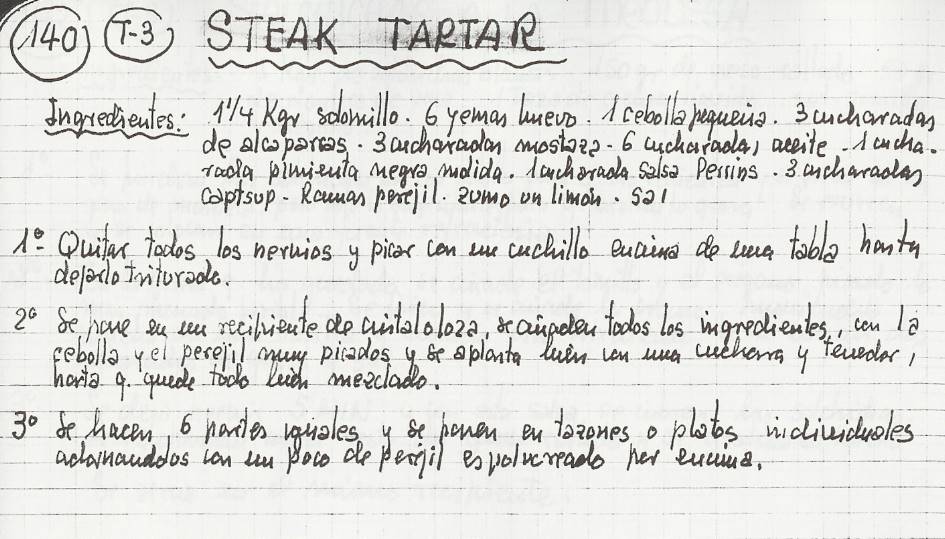 140 T-3 STEAK TARTAR
Ingredientes: 1'1/4 Kgr solomillo. 6 yemas huevo. 1 cebolla pequeña. 3 cucharadas
de alcaparras. 3 cucharadas mostaza - 6 cucharadas aceite - 1 cucha-
rada pimienta negra molida. 1 cucharada salsa Perrins. 3 cucharadas
Captsup - Ramas perejil. zumo un limón. Sal
1º- Quitar todos los nervios y picar con un cuchillo encima de una tabla hasta
dejarlo triturado.
2º Se pone en un recipiente de cristal o loza, se añaden todos los ingredientes, con la
cebolla y el perejil muy picados y se aplasta bien con una cuchara y tenedor,
hasta q. quede todo bien mezclado.
3º Se hacen 6 partes iguales y se ponen en tazones o platos individuales
adornandolos con un poco de perejil espolvoreado por encima.